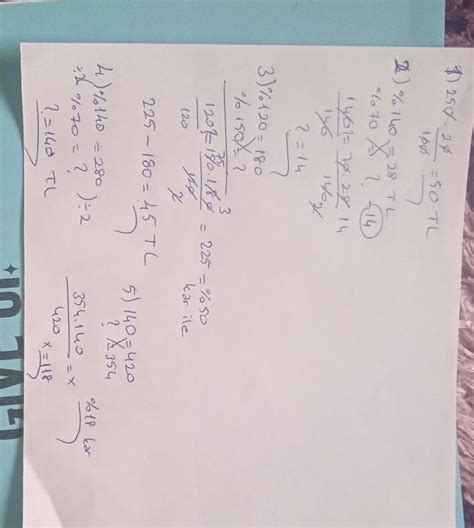 1) 250.20
100
=50 TL
2) %140=28 TL
%70 ?
140?=70.28
140 140
14
14
?=14
3) %120=180
%150=?
120?=150.180
120
3
=225=%50
kar ile
225-180=45 TL
4) %140=280 ) ÷2
÷2 %70=?
?=140 TL
5) 140=420
?=354
354.140
420
=x
x=118
%18 kar
GIVE UP.